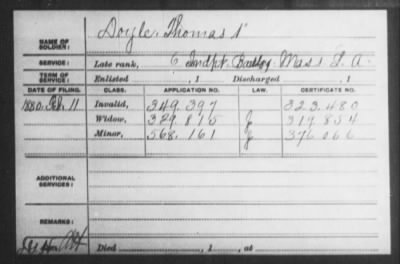 NAME OF SOLDIER: Doyle, Thomas
SERVICE: Late rank, 6 Indpt. Batty Mass L. A.
TERM OF SERVICE: Enlisted , 1 Discharged , 1
DATE OF FILING. CLASS. APPLICATION NO. LAW. CERTIFICATE NO.
1880, Feb. 11 Invalid, 349.397 323.480
Widow, 329.815 J 317.854
Minor, 568.161 J 376.066
ADDITIONAL SERVICES:
REMARKS:
Died , 1 , at